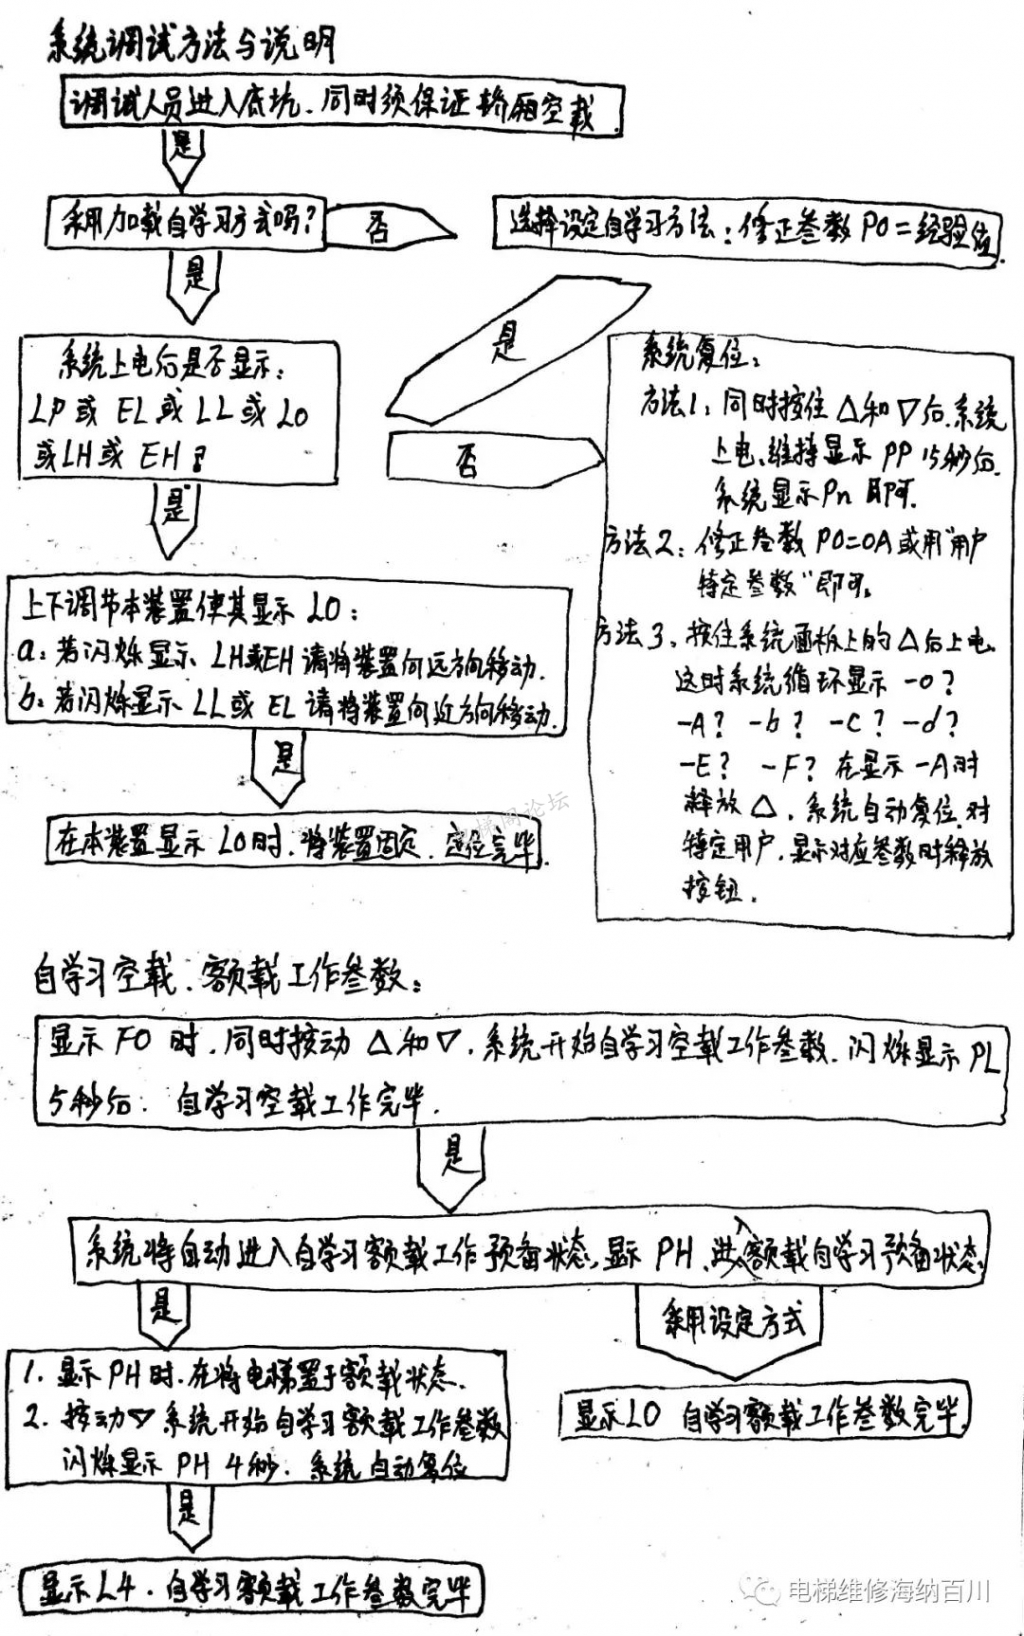 系统调试方法与说明
调试人员进入底坑、同时须保证轿厢空载
是
采用加载自学习方式吗?
否
选择设定自学习方法:修正参数PO=经验值.
是
系统上电后是否显示:
LP或EL或LL或LO
或LH或EH?
是
否
系统复位:
方法1:同时按住△和▽后.系统
上电、维持显示PP 15秒后.
系统显示Pn即可.
方法2:修正参数PO=OA或用"用户
特定参数"即可.
方法3、按住系统面板上的△后上电、
这时系统循环显示-o?
-A? -b? -C? -d?
-E? -F? 在显示-A时
释放△,系统自动复位.对
特定用户,显示对应参数时释放
按钮.
是
上下调节本装置使其显示LO:
a:若闪烁显示LH或EH请将装置向远方向移动.
b:若闪烁显示LL或EL请将装置向近方向移动.
是
在本装置显示LO时,将装置固定、定位完毕
梯网论坛
自学习空载、额载工作参数:
显示FO时,同时按动△和▽,系统开始自学习空载工作参数.闪烁显示PL
5秒后.自学习空载工作完毕.
是
系统将自动进入自学习额载工作预备状态,显示PH、进入额载自学习预备状态;
是
采用设定方式
1.显示PH时.在将电梯置于额载状态.
2.按动▽系统开始自学习额载工作参数
闪烁显示PH 4秒.系统自动复位
显示LO 自学习额载工作参数完毕.
是
显示L4.自学习额载工作参数完毕
电梯维修海纳百川